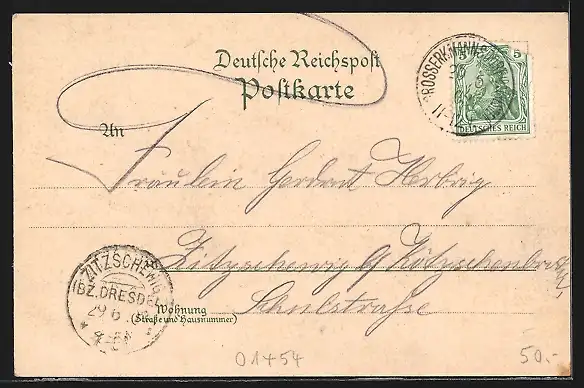 Deutsche Reichspost
Postkarte
An
Fräulein Gertrut Herbrig
Zitzschewig b/ Kötzschenbroda
Wohnung
(Straße und Hausnummer)
Schulstrasse
5 5
DEUTSCHES REICH
ZITZSCHEWIG
(BZ. DRESDEN)
29 6
01454
50.-